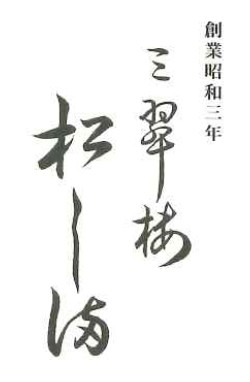 創業昭和三年
三翠楼
松しま